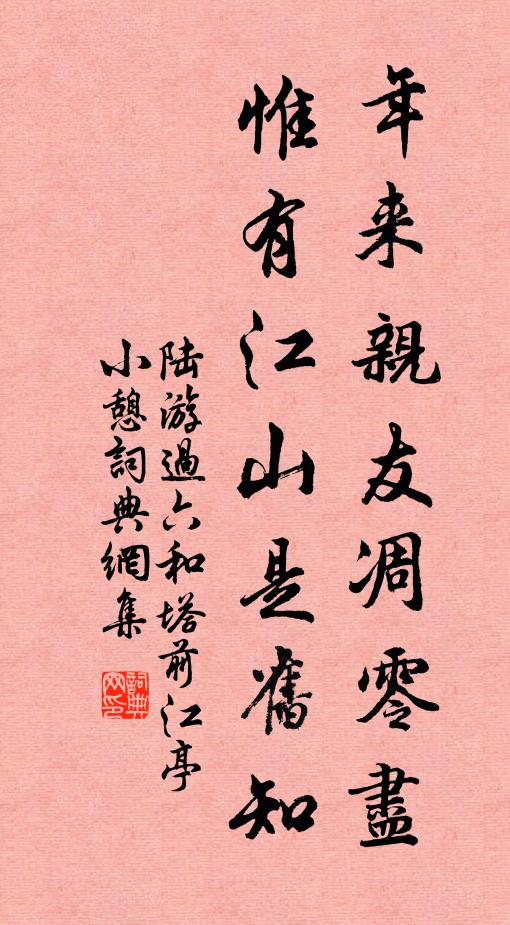 年来親友凋零盡
惟有江山是舊知
陆游過六和塔前江亭
小憩詞典網集
詞典網印